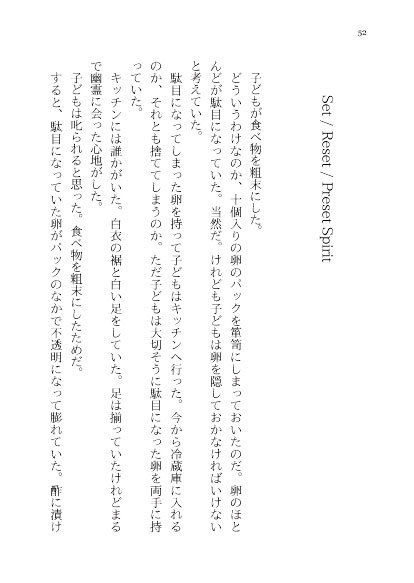 52
Set / Reset / Preset Spirit
子どもが食べ物を粗末にした。
どういうわけなのか、十個入りの卵のパックを箪笥にしまっておいたのだ。卵のほと
んどが駄目になっていた。当然だ。けれども子どもは卵を隠しておかなければいけない
と考えていた。
駄目になってしまった卵を持って子どもはキッチンへ行った。今から冷蔵庫に入れる
のか、それとも捨ててしまうのか。ただ子どもは大切そうに駄目になった卵を両手に持
っていた。
キッチンには誰かがいた。白衣の裾と白い足をしていた。足は揃っていたけれどまる
で幽霊に会った心地がした。
子どもは叱られると思った。食べ物を粗末にしたためだ。
すると、駄目になっていた卵がパックのなかで不透明になって膨れていた。酢に漬け